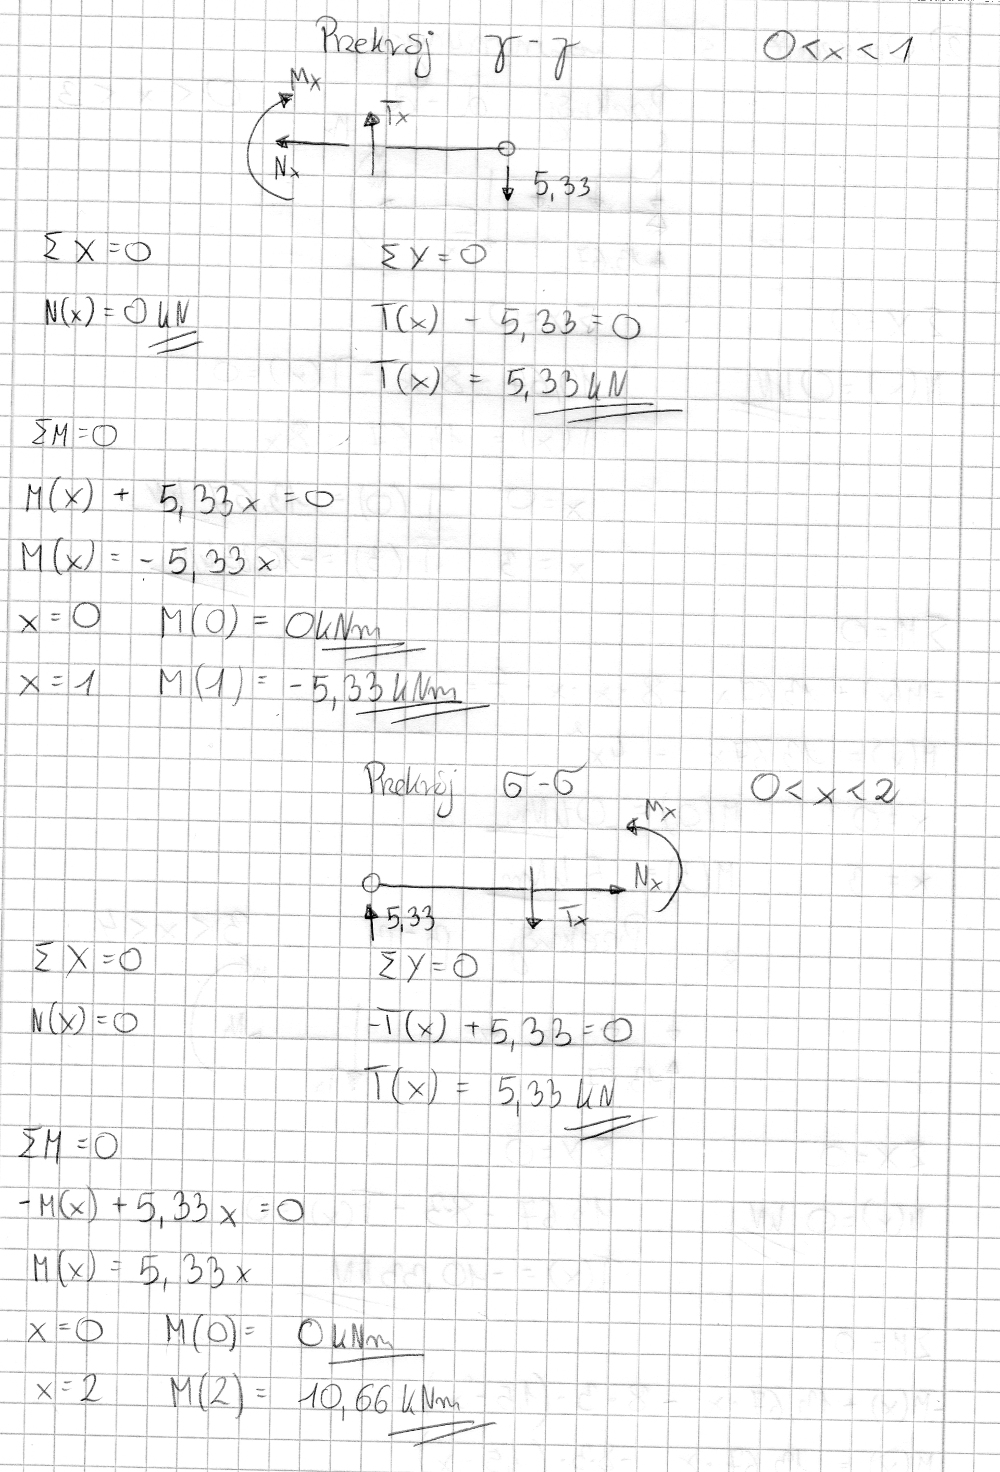 Przekrój γ-γ 0<x<1
Mx
Tx
Nx
5,33
ΣX=0 ΣY=0
N(x)=0kN T(x) - 5,33=0
T(x) = 5,33kN
ΣM=0
M(x) + 5,33x =0
M(x) = -5,33x
x=0 M(0) = 0kNm
x=1 M(1) = -5,33kNm
Przekrój σ-σ 0<x<2
Mx
Nx
5,33 Tx
ΣX=0 ΣY=0
N(x)=0 -T(x) +5,33=0
T(x) = 5,33 kN
ΣM=0
-M(x) +5,33x =0
M(x) = 5,33x
x=0 M(0)= 0kNm
x=2 M(2)= 10,66 kNm